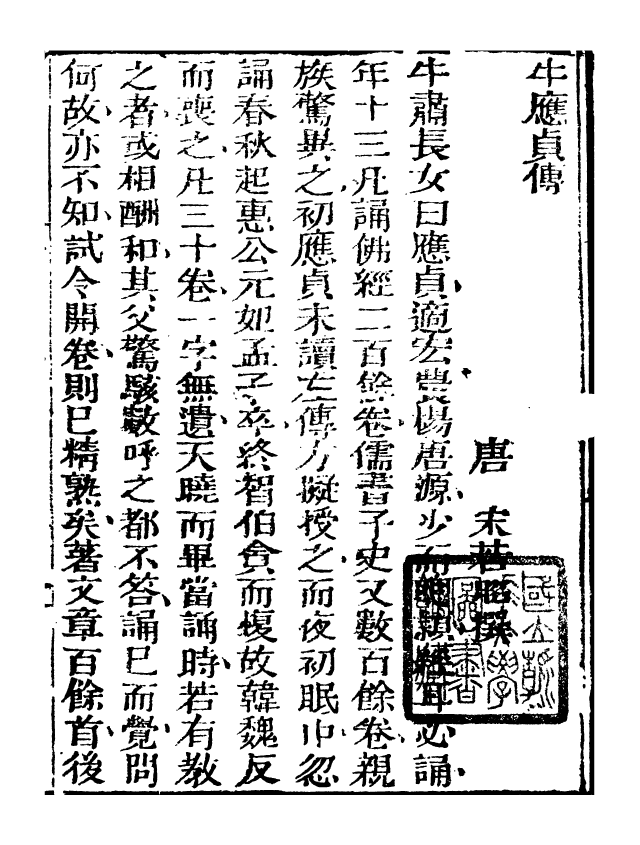 牛應貞傳
唐　宋若昭撰
牛肅長女曰應貞適宏農楊唐源少而聰穎經耳必誦
年十三凡誦佛經二百餘卷儒書子史又數百餘卷親
族驚異之初應貞未讀左傳方擬授之而夜初眠中忽
誦春秋起惠公元妃孟子卒終智伯貪而愎故韓魏反
而喪之凡三十卷一字無遺天曉而畢當誦時若有教
之者或相酬和其父驚駭數呼之都不答誦已而覺問
何故亦不知試令開卷則已精熟矣著文章百餘首後